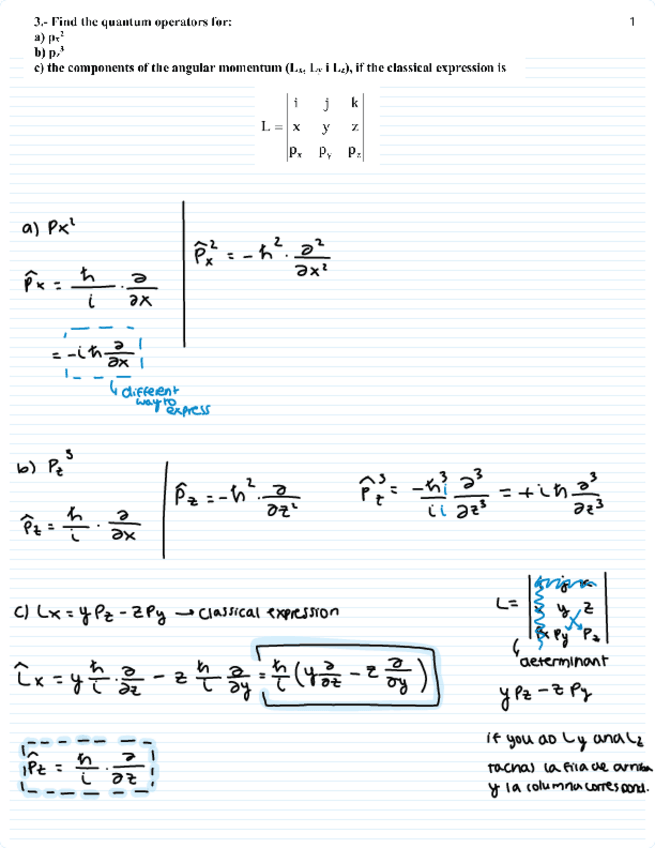 3.- Find the quantum operators for:
1
a) pₓ²
b) p_z³
c) the components of the angular momentum (Lₓ, L_y i L_z), if the classical expression is
L = | i j k |
| x y z |
| pₓ p_y p_z |
a) Px²
P̂x = ħ/i · ∂/∂x
= -iħ ∂/∂x
↳ different
way to
express
P̂x² = -ħ² · ∂²/∂x²
b) Pz³
P̂z = ħ/i · ∂/∂x
P̂z = -ħ² · ∂/∂z²
P̂z³ = -ħ³i/ii ∂³/∂z³ = +iħ ∂³/∂z³
c) Lx = yPz - zPy → classical expression
L̂x = y ħ/i · ∂/∂z - z ħ/i ∂/∂y = ħ/i (y ∂/∂z - z ∂/∂y)
P̂z = ħ/i · ∂/∂z
L=
y z
Px Py Pz
determinant
yPz - zPy
if you do Ly and Lz
tachas la fila de arriba
y la columna correspond.